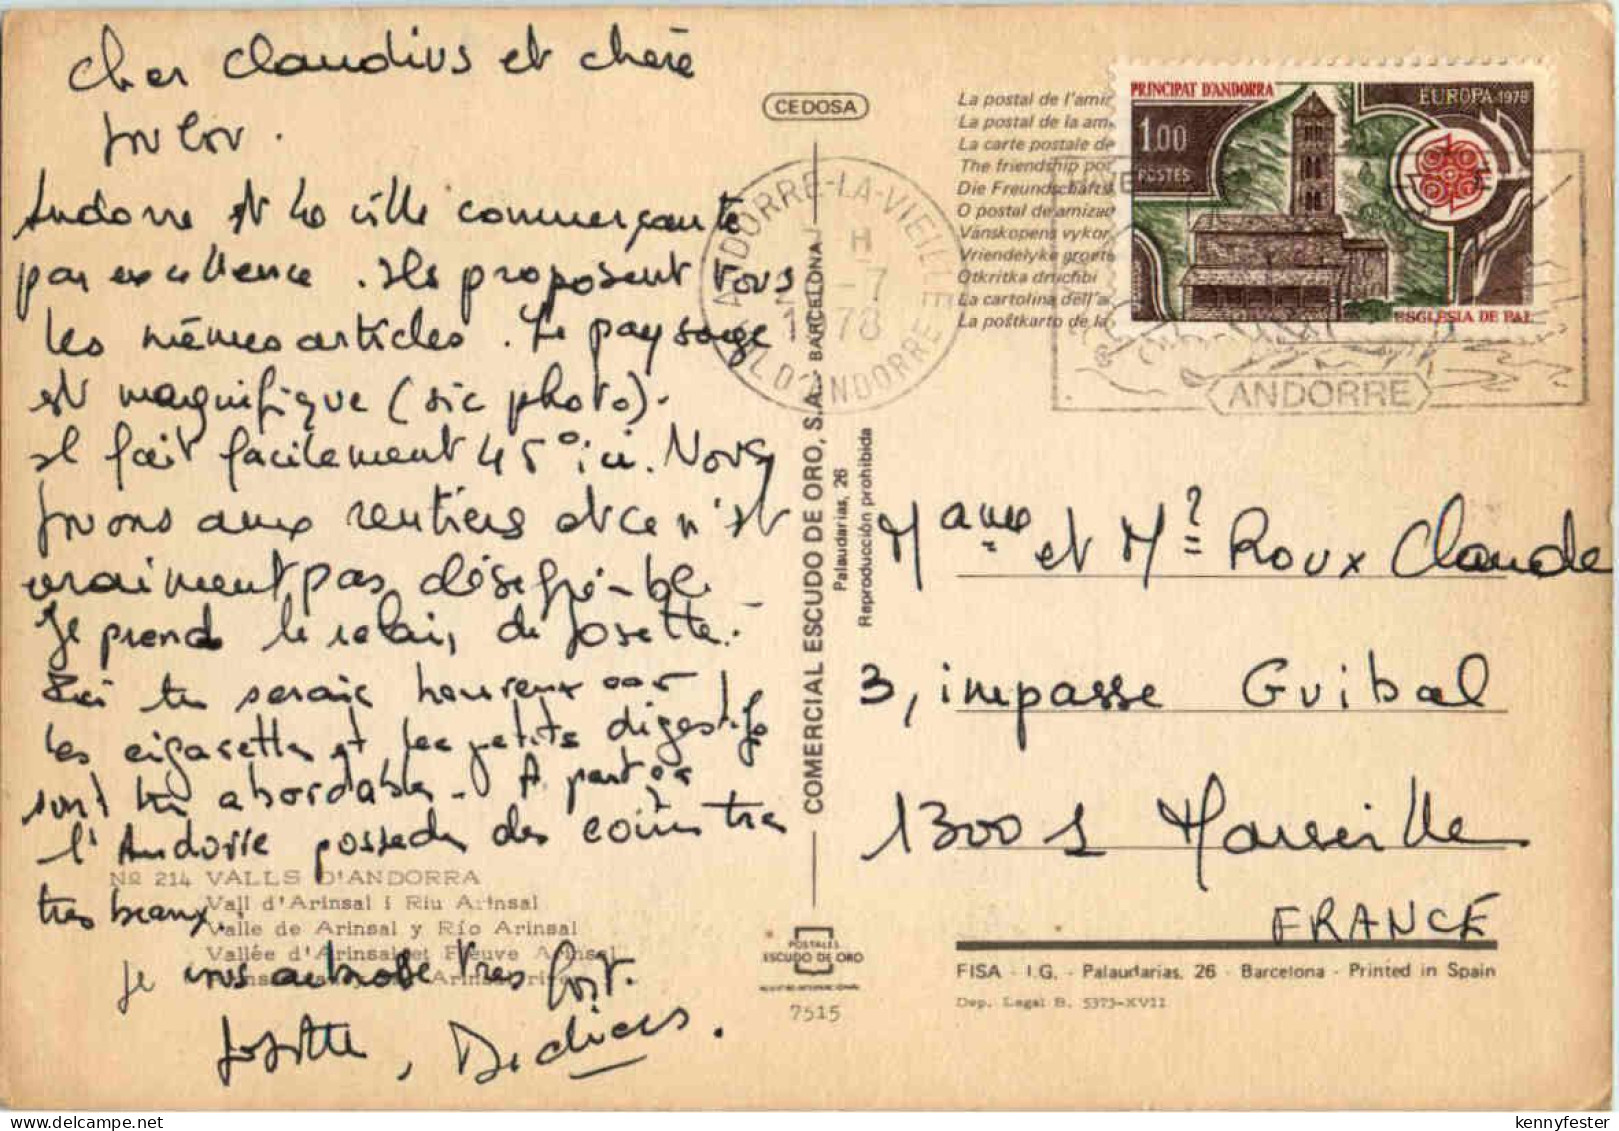 Cher Claudius et chère
Andorre est la ville commerçante
par excellence. Ils proposent tous
les mêmes articles. Le paysage
est magnifique (sic photo).
Il fait facilement 45° ici. Nous
jouons aux rentiers et ce n'est
vraiment pas
Je prend le relais de Josette.
Ici tu serais heureux car
les cigarettes et les petits digestifs
sont très abordables. A part ça
l'Andorre possède des coins très
très beaux.
Je vous embrasse très fort.
Josette, Didier.
Nº 214 VALLS D'ANDORRA
Vall d'Arinsal i Riu Arinsal
Valle de Arinsal y Río Arinsal
Vallée d'Arinsal et Fleuve Arinsal
CEDOSA
COMERCIAL ESCUDO DE ORO, S.A. - BARCELONA
Palaudarias, 26
Reproducción prohibida
POSTALES
ESCUDO DE ORO
7515
La postal de l'amir
La postal de la am
La carte postale de
The friendship pos
Die Freundschafts
O postal de amizad
Vänskopens vykor
Vriendelyke groete
Otkritka druchbi
La cartolina dell'a
La poŝtkarto de la
PRINCIPAT D'ANDORRA
EUROPA-1978
1.00
POSTES
ESGLESIA DE PAL
ANDORRE-LA-VIEILLE
H
-7
1978
VAL D'ANDORRE
ANDORRE
Mame et Mr Roux Claude
3, impasse Guibal
13001 Marseille
FRANCE
FISA - I.G. - Palaudarias, 26 - Barcelona - Printed in Spain
Dep. Legal B. 5373-XVII
kennyfester